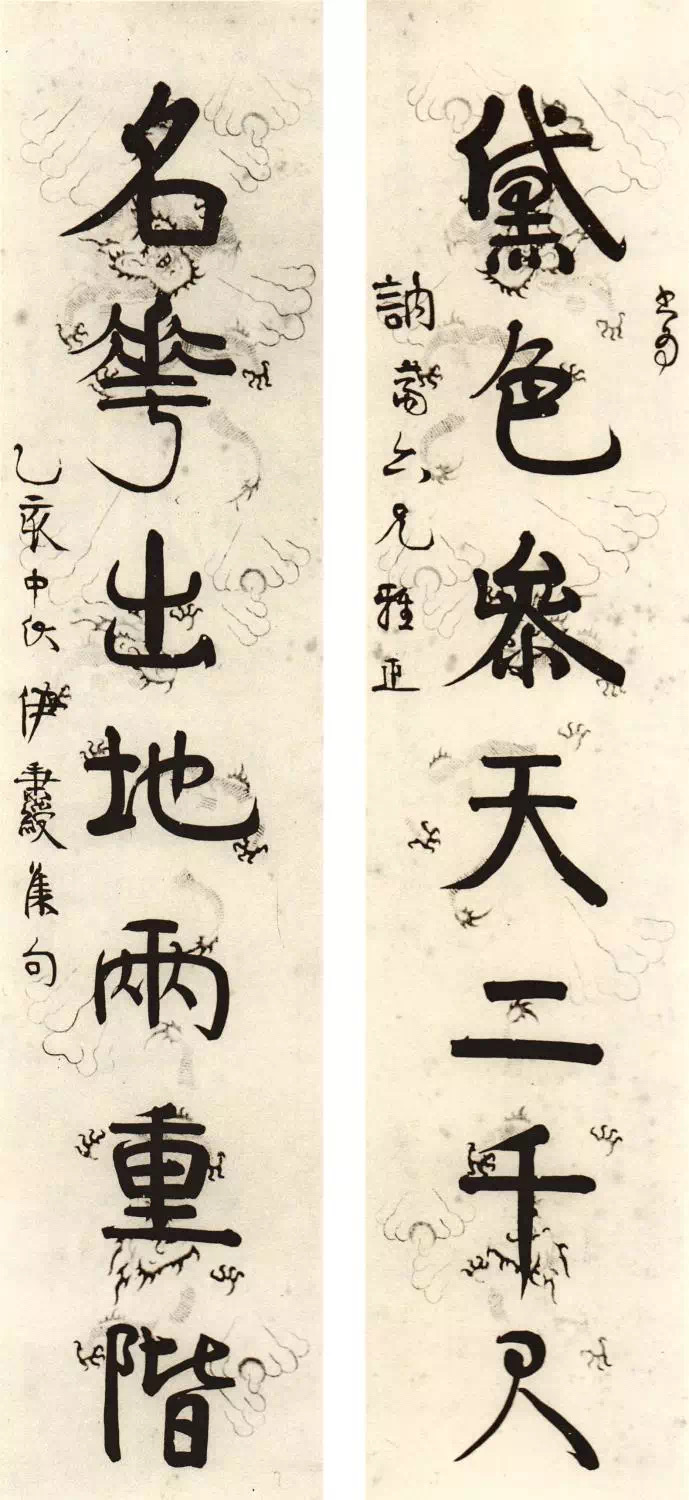 書為
黛色參天二千尺
訥六兄雅正
名華出地兩重階
乙亥中伏伊秉綬集句